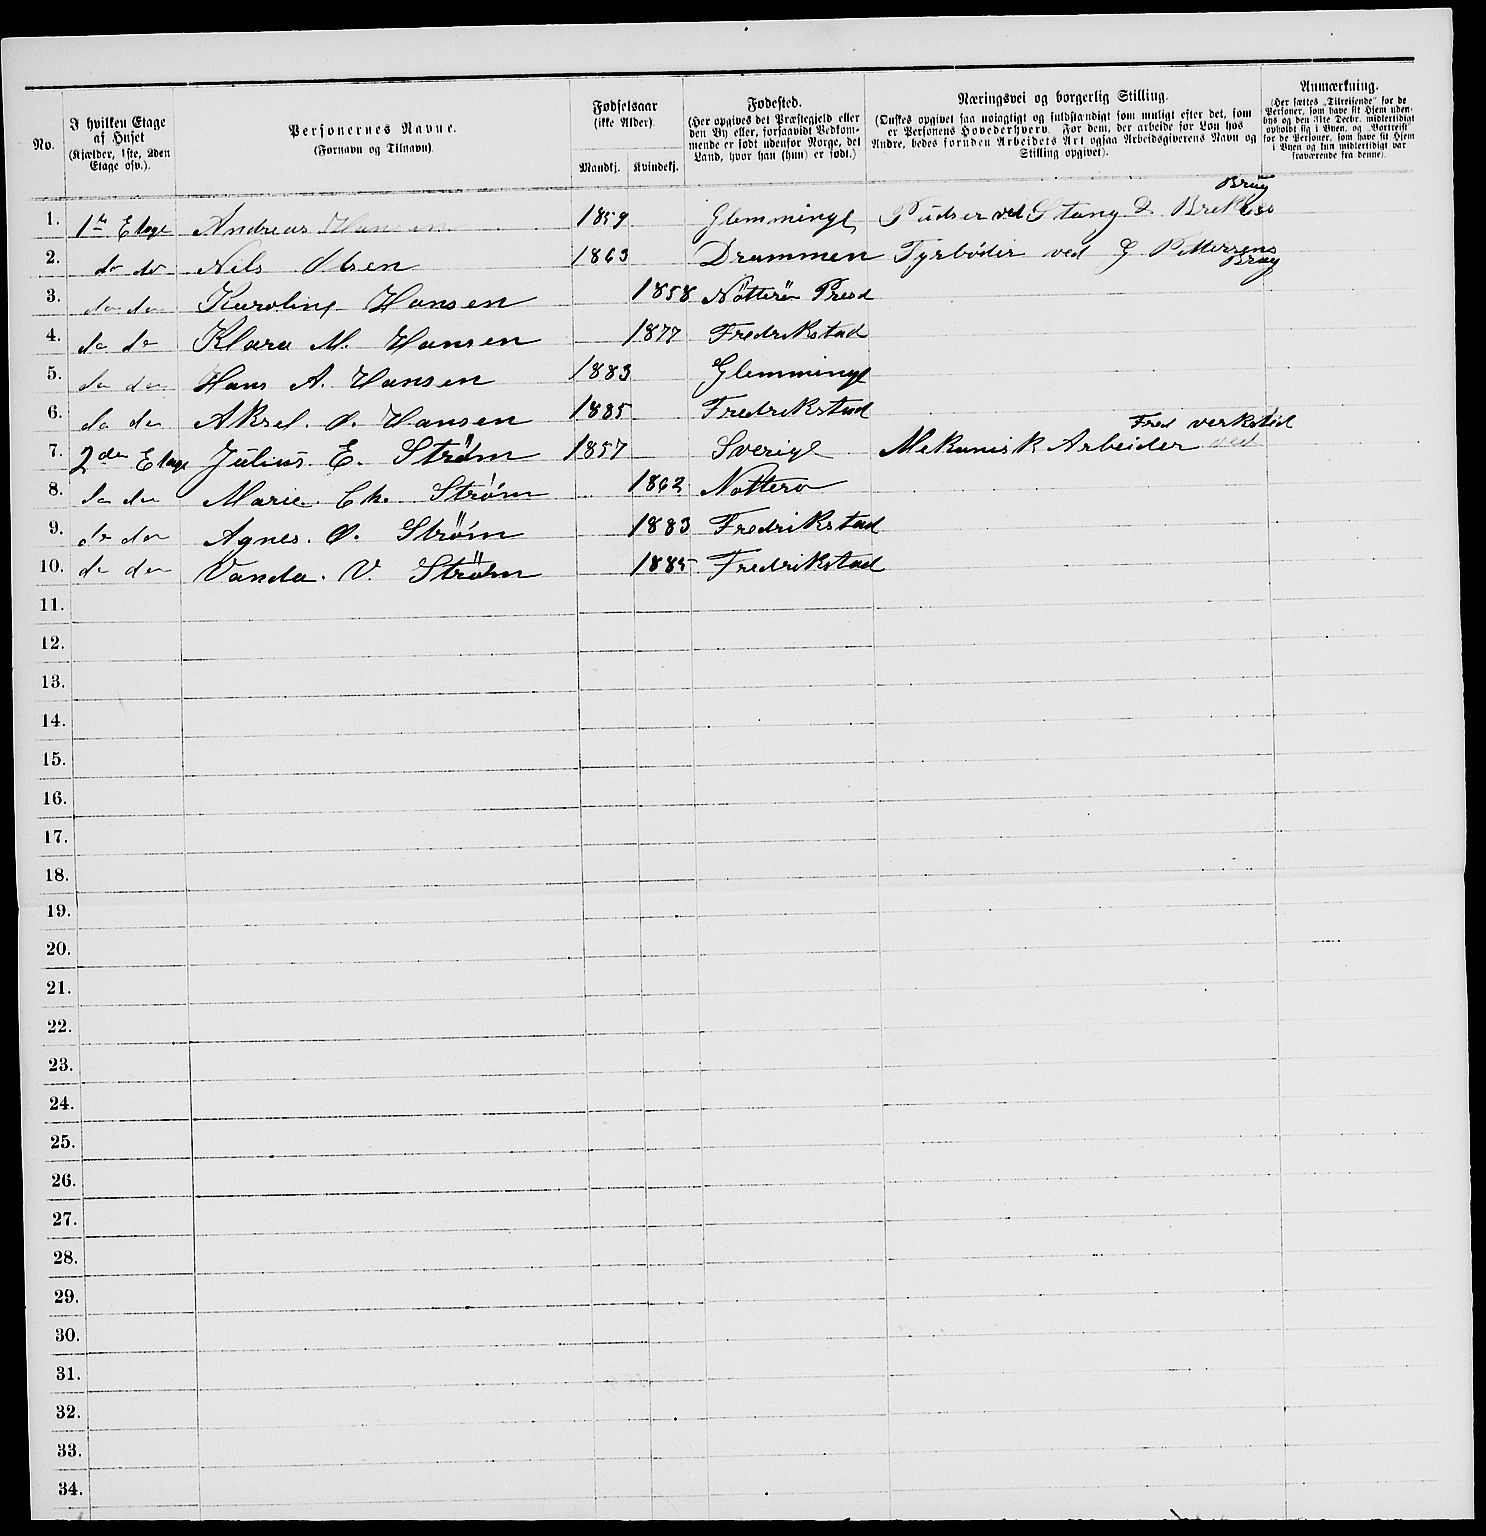 No. | I hvilken Etage af Huset (Kjælder, 1ste, 2den Etage osv.). | Personernes Navne. (Fornavn og Tilnavn). | Fødselsaar (ikke Alder). Mandkj. | Kvindekj. | Fødested. (Her opgives det Præstegjeld eller den By eller, forsaavidt Vedkommende er født udenfor Norge, det Land, hvor han (hun) er født.) | Næringsvei og borgerlig Stilling. (Ønskes opgivet saa nøiagtigt og fuldstændigt som muligt efter det, som er Personens Hovederhverv. For dem, der arbeide for Løn hos Andre, bedes foruden Arbeidets Art ogsaa Arbeidsgiverens Navn og Stilling opgivet). | Anmærkning. (Her sættes „Tilreisende“ for de Personer, som have sit Hjem udenbys og den 31te Decbr. midlertidigt opholdt sig i Byen, og „Bortreist“ for de Personer, som have sit Hjem i Byen og kun midlertidigt var fraværende fra denne).
1. 1ste Etage Andreas Hansen 1859 Glemminge Pudser ved Stang & Brekkes Brug
2. do do Nils Olsen 1863 Drammen Fyrbøder ved G Pettersens Brug
3. do do Karoline Hansen 1858 Nötterö Presd
4. do do Klara M. Hansen 1877 Fredrikstad
5. do do Hans A. Hansen 1883 Glemminge
6. do do Aksel. O. Hansen 1885 Fredrikstad
7. 2den Etage Julius. E. Strøm 1857 Sverige Mekanisk Arbeider ved Fred verksted
8. do do Marie. Ch. Strøm 1862 Nøtterø
9. do do Agnes. O. Strøm 1883 Fredrikstad
10. do do Vanda. V. Strøm 1885 Fredrikstad
11.
12.
13.
14.
15.
16.
17.
18.
19.
20.
21.
22.
23.
24.
25.
26.
27.
28.
29.
30.
31.
32.
33.
34.